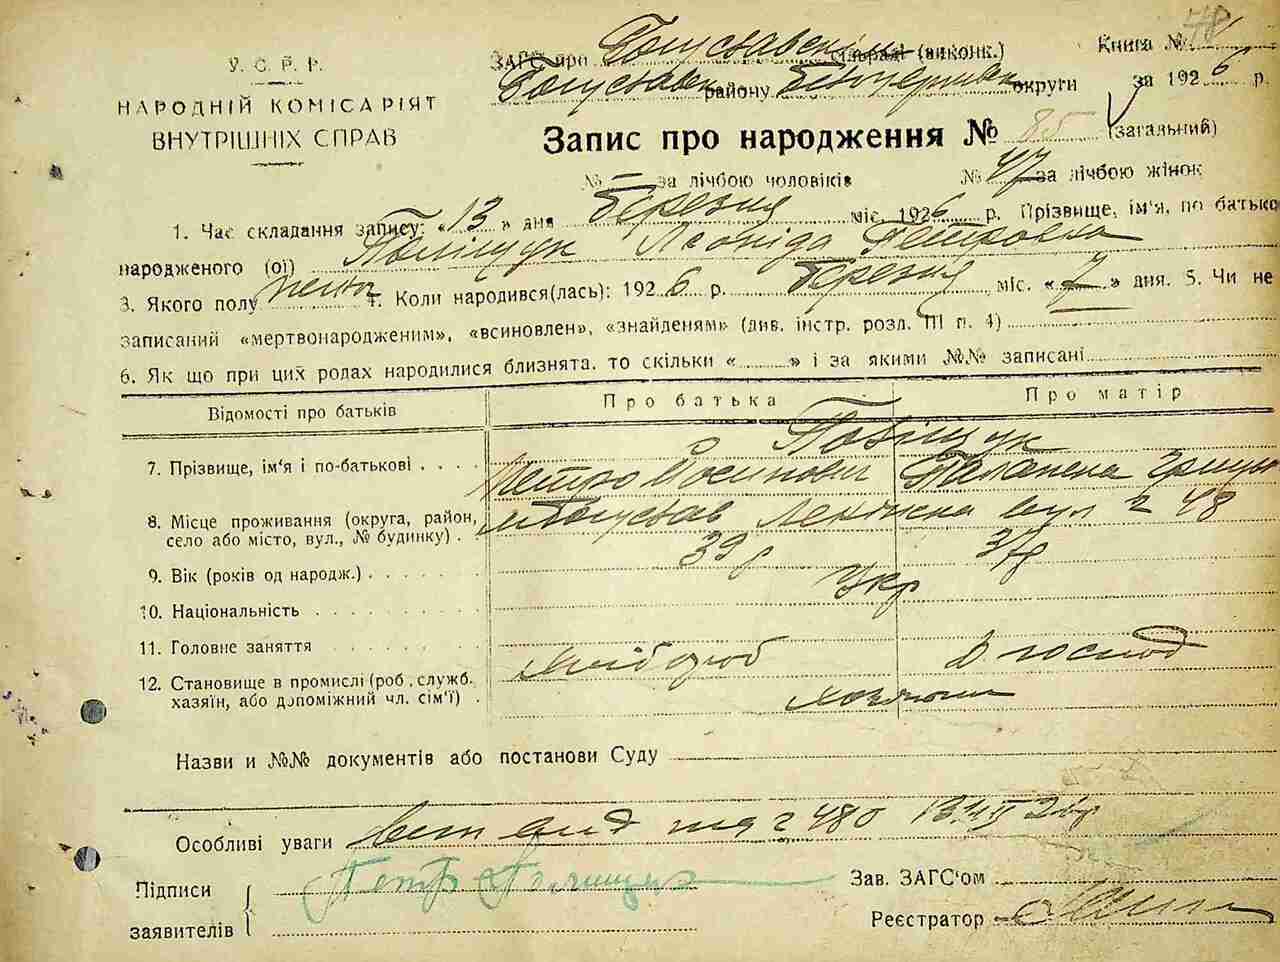 У. С. Р. Р.
НАРОДНІЙ КОМІСАРІЯТ
ВНУТРІШНІХ СПРАВ
ЗАГС при Богуславській сільраді (виконк.) Книга №
Богуслав району Білоцерків округи за 1926 р.
Запис про народження № 85 (загальний)
№ — за лічбою чоловіків № 47 за лічбою жінок
1. Час складання запису: «13» дня березня міс. 1926 р. Прізвище, ім'я, по батькові
народженого (ої) Поліщук Леоніда Петровна
3. Якого полу жіноч 4. Коли народився(лась): 1926 р. березня міс. «7» дня. 5. Чи не
записаний «мертвонародженим», «всиновлен», «знайденям» (див. інстр. розд. III п. 4)
6. Як що при цих родах народилися близнята. то скільки « » і за якими №№ записані
Відомості про батьків Про батька Про матір
Поліщук
7. Прізвище, ім'я і по-батькові Петро Йосипович Палажка Гриць
8. Місце проживання (округа, район, село або місто, вул., № будинку) м Богуслав Леніна вул 2 48
9. Вік (років од народж.) 39 р 37 р
10. Національність Укр
11. Головне заняття хлібороб в господ
12. Становище в промислі (роб., служб. хазяїн, або допоміжний чл. сім'ї)
Назви и №№ документів або постанови Суду
Особливі уваги
Підписи
заявителів
Зав. ЗАГС'ом
Реєстратор